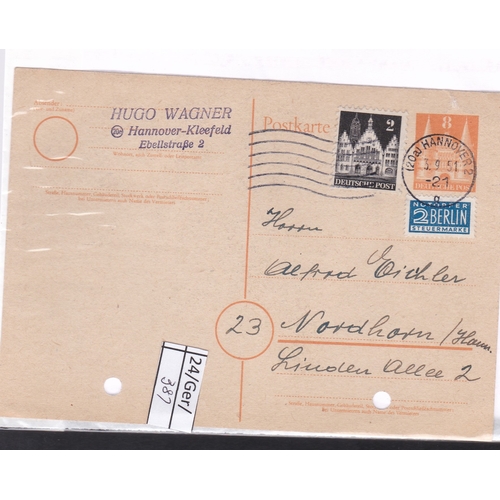 HUGO WAGNER
20a Hannover-Kleefeld
Ebellstraße 2
Postkarte
2
DEUTSCHE POST
8
DEUTSCHE POST
(20a) HANNOVER 2
3.9.51.-21
NOTOPFER
2 BERLIN
STEUERMARKE
Herrn
Alfred Eichler
23 Nordhorn / Hann.
Linden Allee 2
24/Ger/
387